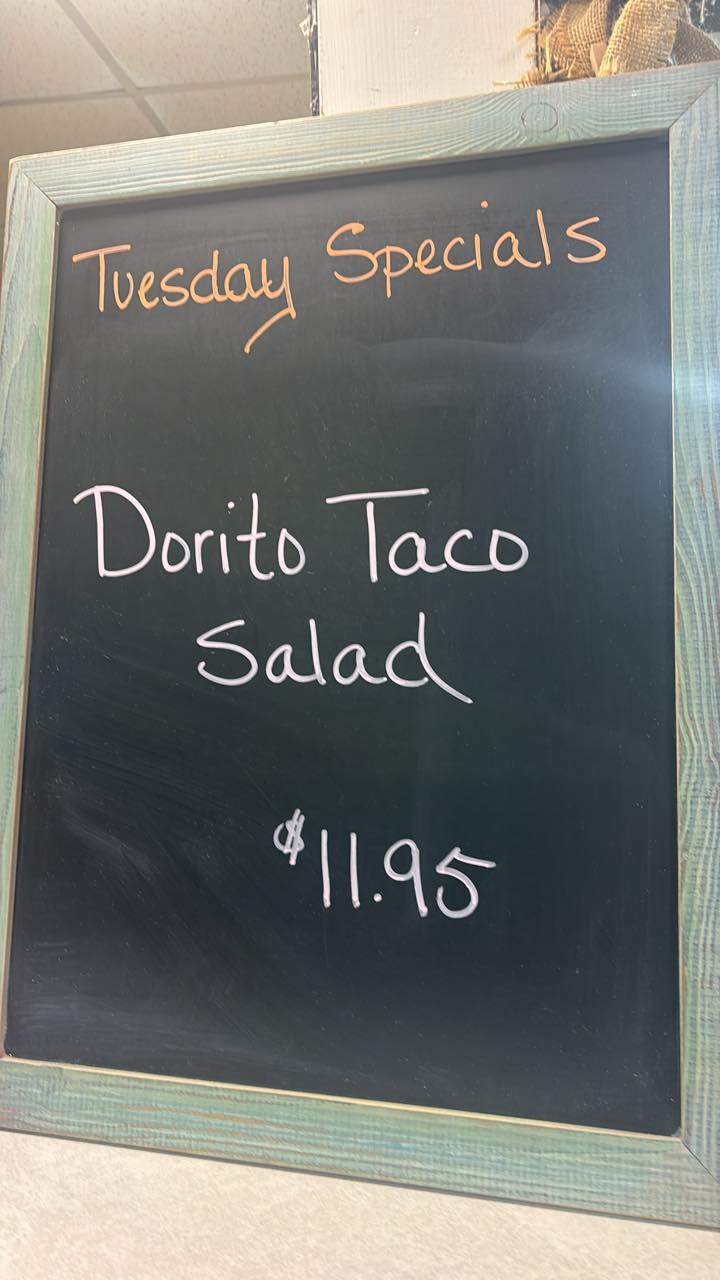 Tuesday Specials
Dorito Taco
Salad
$11.95